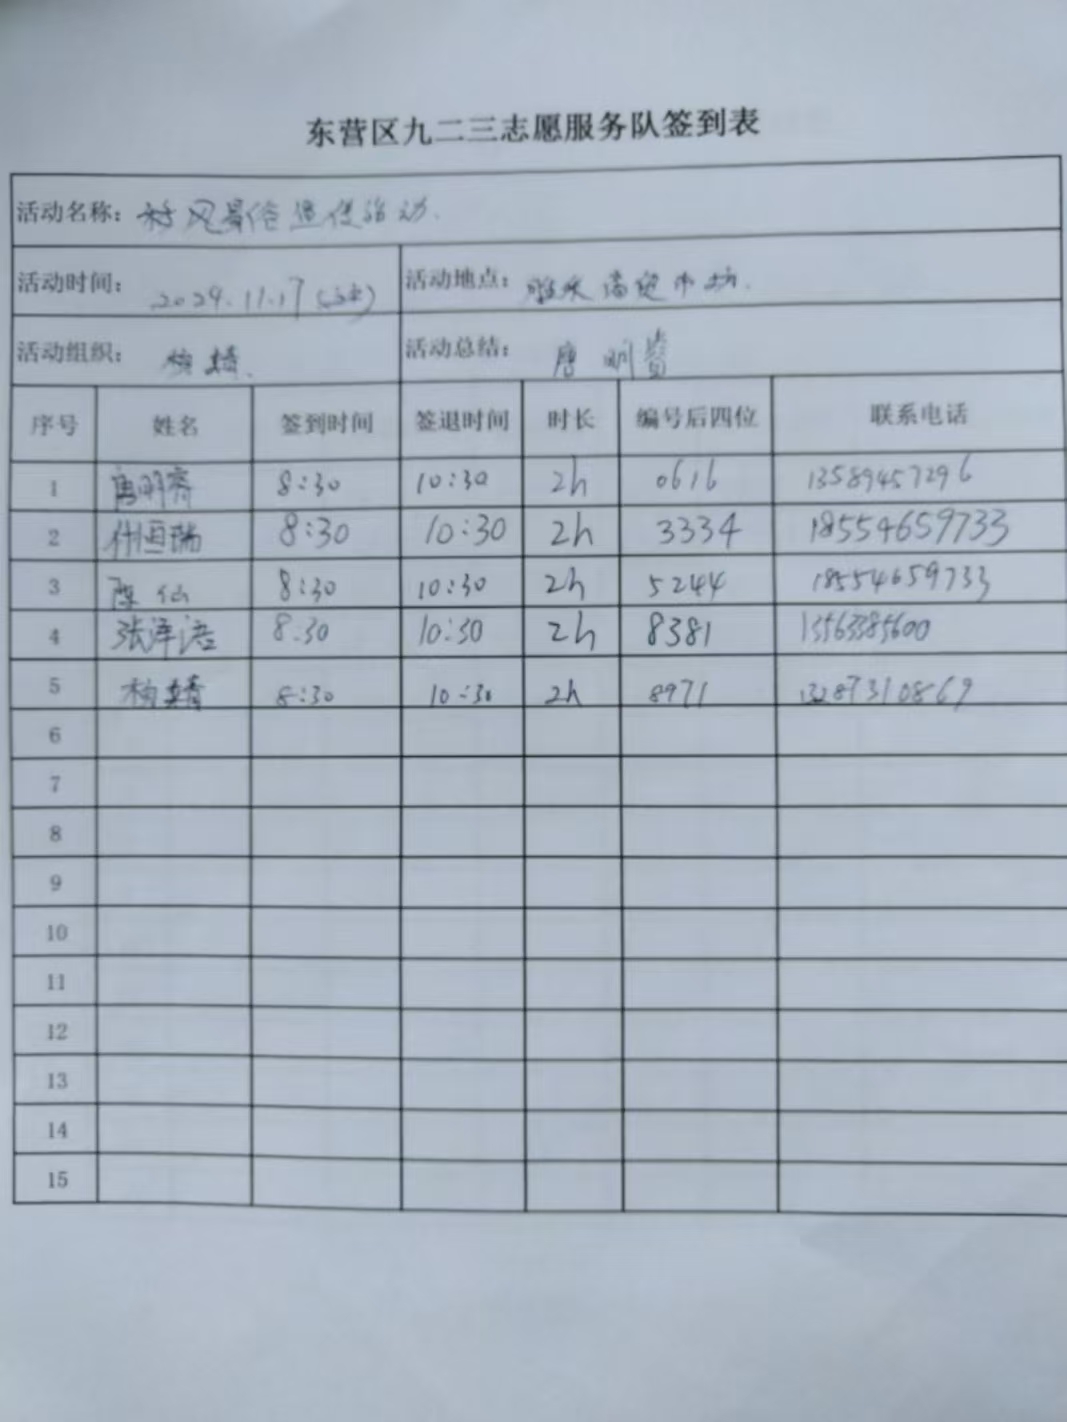 东营区九二三志愿服务队签到表
活动名称：移风易俗宣传活动.
活动时间： 2024.11.17 活动地点： 商贸市场.
活动组织： 杨婧. 活动总结： 唐明
序号 姓名 签到时间 签退时间 时长 编号后四位 联系电话
1 唐明 8:30 10:30 2h 0616 13589457296
2 恒瑞 8:30 10:30 2h 3334 18554659733
3 陈仙 8:30 10:30 2h 5244 18554659733
4 张泽浯 8:30 10:30 2h 8381 13563385600
5 杨婧 8:30 10:30 2h 8971 13287310869
6
7
8
9
10
11
12
13
14
15